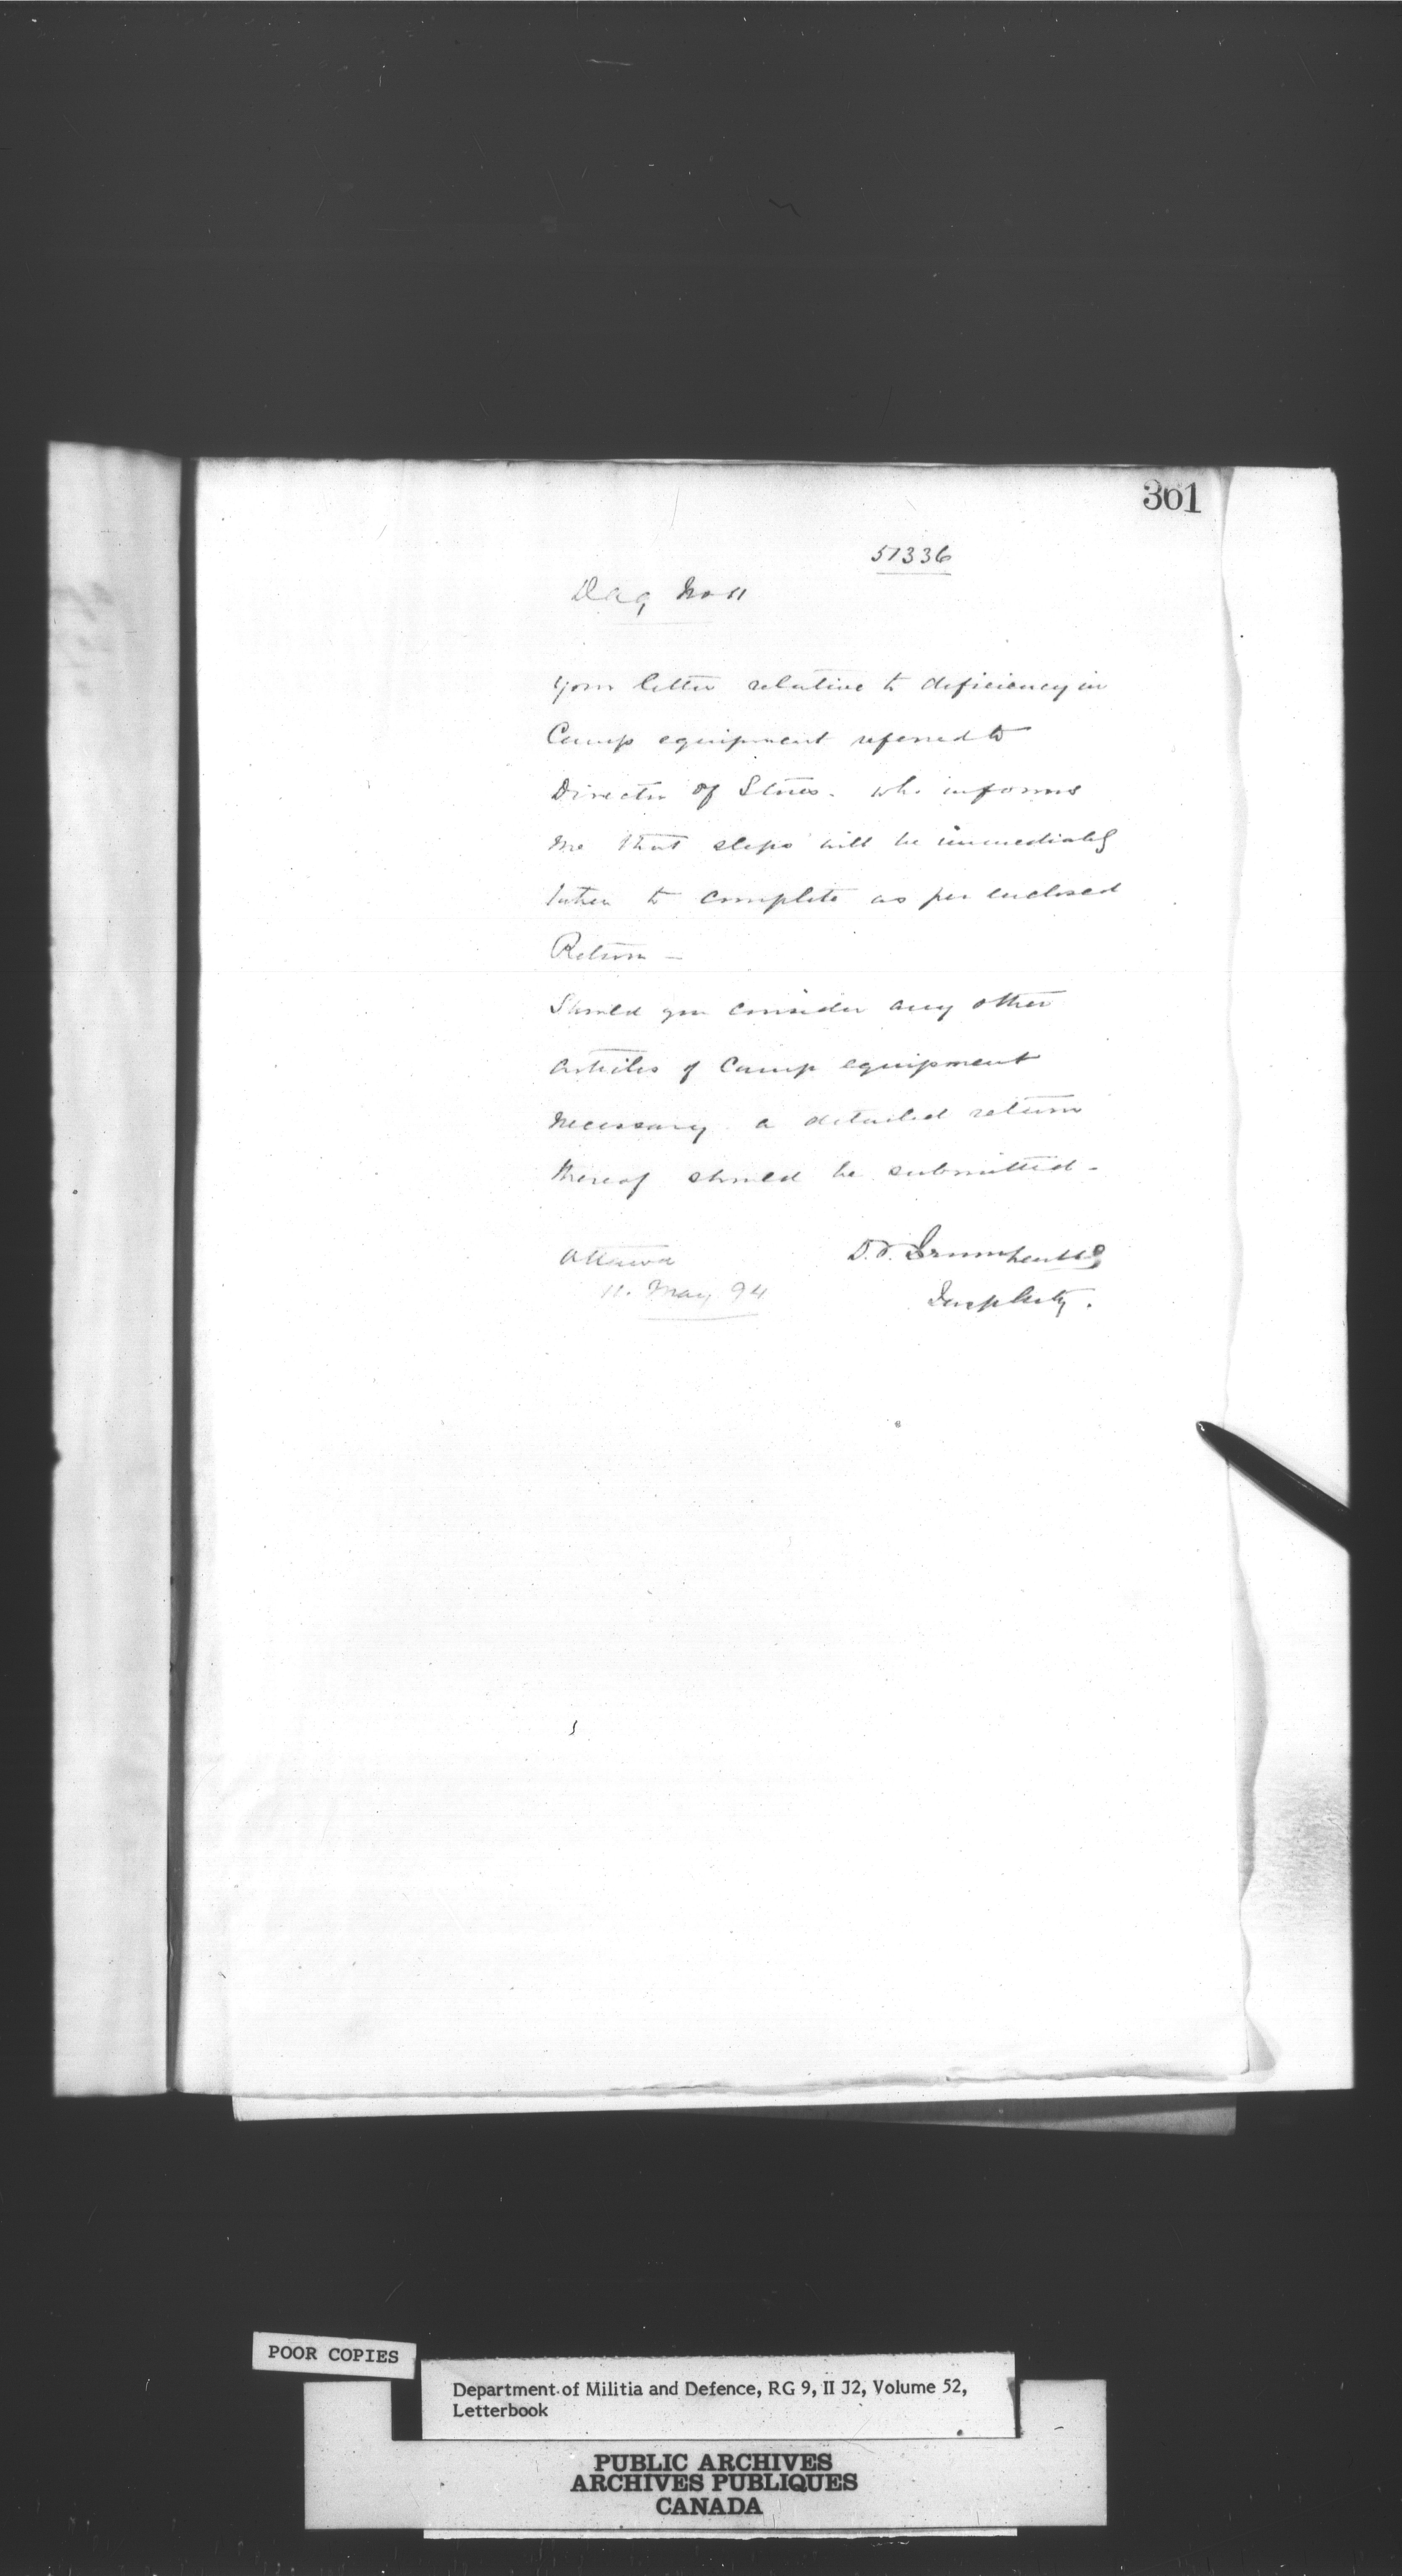 361
51336
Dag No 11
Your letter relative to deficiency in
Camp equipment referred to
Director of Stores. who informs
me that steps will be immediately
taken to complete as per enclosed
Return —
Should you consider any other
articles of Camp equipment
necessary a detailed return
thereof should be submitted —
Ottawa
11. May 94
POOR COPIES
Department of Militia and Defence, RG 9, II J2, Volume 52,
Letterbook
PUBLIC ARCHIVES
ARCHIVES PUBLIQUES
CANADA